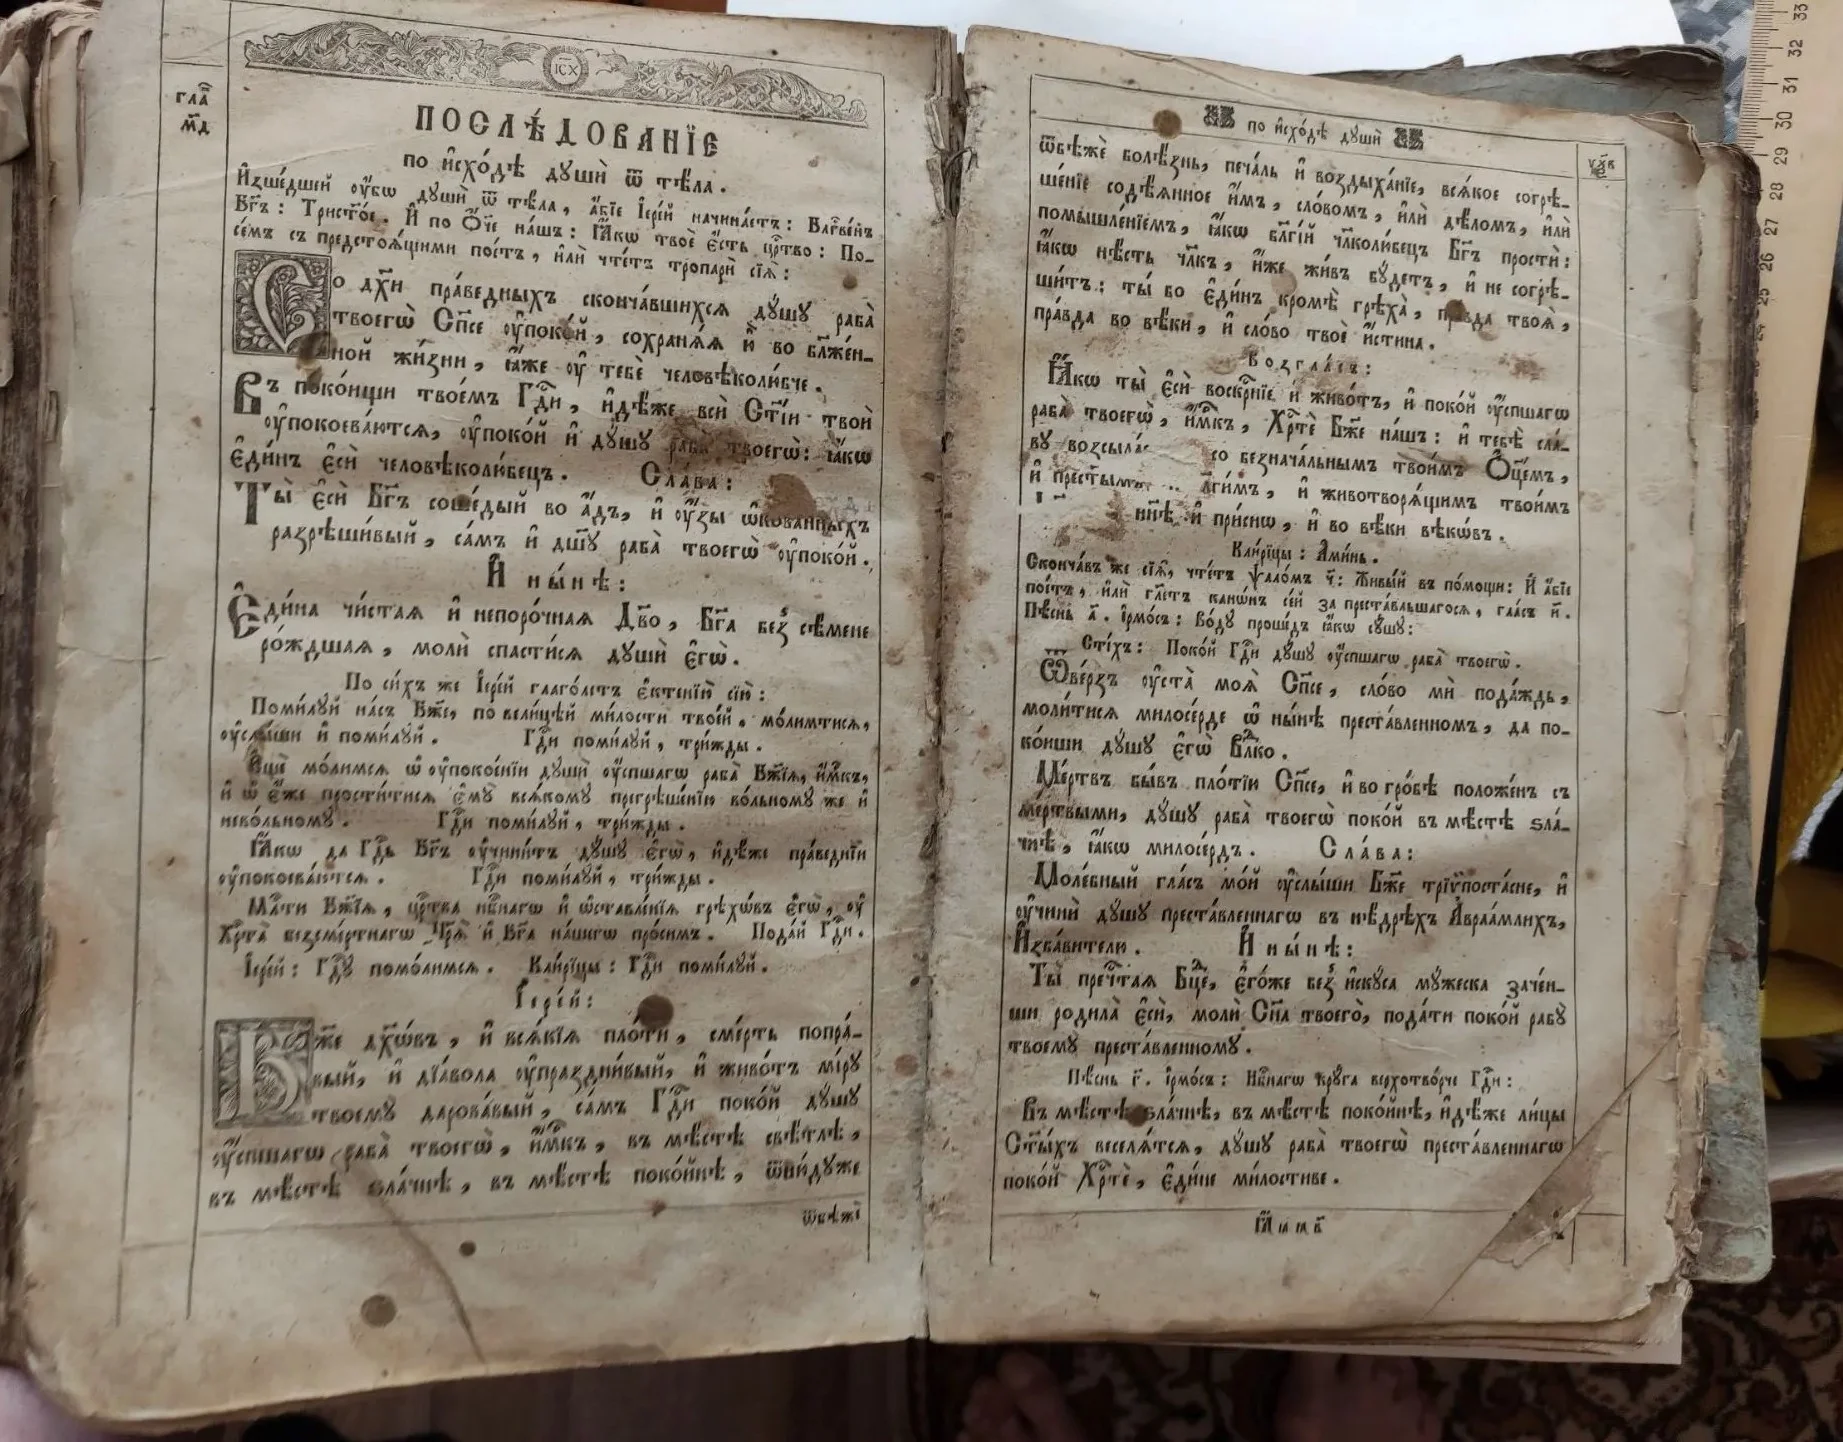 ІС Х
гла҃
м҃д
ПОСЛѢ́ДОВАНЇЕ
по и҆схо́дѣ дꙋшѝ ѿ тѣ́ла .
И҆зше́дшей ᲂу҆́бѡ дꙋшѝ ѿ тѣ́ла , а҆́бїе І҆ере́й начина́етъ : Блгⷭ҇ве́нъ
Бг҃ъ : Трист҃о́е . И҆ по Ѻ҆́ч҃е на́шъ : Ꙗ҆́кѡ твоѐ є҆́сть црⷭ҇тво : По-
се́мъ съ предстоѧ́щими пое́тъ , и҆лѝ чте́тъ тропарѝ сїѧ̑ :
Со дх҃и пра́ведныхъ сконча́вшихсѧ дꙋ́шꙋ раба̀
твоегѡ̀ Сп҃се ᲂу҆поко́й , сохранѧ́ѧ ю҆̀ во бл҃же́н-
ной жи́зни , ꙗ҆́же ᲂу҆ тебѐ человѣколю́бче .
Въ поко́ищи твое́мъ Гдⷭ҇и , и҆дѣ́же всѝ Ст҃і́и твоѝ
ᲂу҆покоева́ютсѧ , ᲂу҆поко́й и҆ дꙋ́шꙋ раба̀ твоегѡ̀ : ꙗ҆́кѡ
є҆ди́нъ є҆сѝ человѣколю́бецъ . Сла́ва :
Ты̀ є҆сѝ Бг҃ъ соше́дый во а҆́дъ , и҆ ᲂу҆́зы ѡ҆кова́нныхъ
разрѣши́вый , са́мъ и҆ дш҃ꙋ раба̀ твоегѡ̀ ᲂу҆поко́й .
И҆ ны́нѣ :
Є҆ди́на чи́стаѧ и҆ непоро́чнаѧ Дв҃о , Бг҃а без̾ сѣ́мене
ро́ждшаѧ , молѝ спасти́сѧ дꙋшѝ є҆гѡ̀ .
По си́хъ же І҆ере́й глаго́летъ є҆ктенїю̀ сїю̀ :
Поми́лꙋй на́съ Бж҃е , по вели́цѣй ми́лости твое́й , мо́лимтисѧ ,
ᲂу҆слы́ши и҆ поми́лꙋй . Гдⷭ҇и поми́лꙋй , три́жды .
Є҆щѐ мо́лимсѧ ѡ҆ ᲂу҆покое́нїи дꙋшѝ ᲂу҆со́пшагѡ раба̀ Бж҃їѧ , и҆́мⷬ҇къ ,
и҆ ѡ҆ є҆́же прости́тисѧ є҆мꙋ̀ всѧ́комꙋ прегрѣше́нїю во́льномꙋ же и҆
нево́льномꙋ . Гдⷭ҇и поми́лꙋй , три́жды .
Ꙗ҆́кѡ да Гдⷭ҇ь Бг҃ъ ᲂу҆чини́тъ дꙋ́шꙋ є҆гѡ̀ , и҆дѣ́же пра́веднїи
ᲂу҆покоева́ютсѧ . Гдⷭ҇и поми́лꙋй , три́жды .
Млⷭ҇ти Бж҃їѧ , црⷭ҇тва нбⷭ҇нагѡ и҆ ѡ҆ставле́нїѧ грѣхѡ́въ є҆гѡ̀ , ᲂу҆
Хрⷭ҇та̀ безсме́ртнагѡ Цр҃ѧ̀ и҆ Бг҃а на́шегѡ про́симъ . Пода́й Гдⷭ҇и .
І҆ере́й : Гдⷭ҇ꙋ помо́лимсѧ . Кли́рїцы : Гдⷭ҇и поми́лꙋй .
І҆ере́й :
Бж҃е дх҃ѡ́въ , и҆ всѧ́кїѧ пло́ти , сме́рть попра́-
вый , и҆ дїа́вола ᲂу҆праздни́вый , и҆ живо́тъ мі́рꙋ
твоемꙋ̀ дарова́вый , са́мъ Гдⷭ҇и поко́й дꙋ́шꙋ
ᲂу҆со́пшагѡ раба̀ твоегѡ̀ , и҆́мⷬ҇къ , въ мѣ́стѣ свѣ́тлѣ ,
въ мѣ́стѣ ѕла́чнѣ , въ мѣ́стѣ поко́йнѣ , ѿню́дꙋже
ѿбѣжѐ
по и҆схо́дѣ дꙋшѝ
ᲂу҆́к҃в
ѿбѣжѐ болѣ́знь , печа́ль и҆ воздыха́нїе , всѧ́кое согрѣ-
ше́нїе содѣ́ѧнное и҆́мъ , сло́вомъ , и҆лѝ дѣ́ломъ , и҆лѝ
помышле́нїемъ , ꙗ҆́кѡ бл҃гі́й чл҃колю́бецъ Бг҃ъ простѝ :
ꙗ҆́кѡ нѣ́сть чл҃къ , и҆́же жи́въ бꙋ́детъ , и҆ не согрѣ-
ши́тъ : ты́ бо є҆ди́нъ кромѣ̀ грѣха̀ , пра́вда твоѧ̀ ,
пра́вда во вѣ́ки , и҆ сло́во твоѐ и҆́стина .
Возгла́съ :
Ꙗ҆́кѡ ты̀ є҆сѝ воскрⷭ҇нїе и҆ живо́тъ , и҆ поко́й ᲂу҆со́пшагѡ
раба̀ твоегѡ̀ , и҆́мⷬ҇къ , Хрⷭ҇тѐ Бж҃е на́шъ : и҆ тебѣ̀ сла́-
вꙋ возсыла́ со безнача́льнымъ твои́мъ Ѻ҆ц҃е́мъ ,
и҆ прест҃ы́мъ лги́мъ , и҆ животворѧ́щимъ твои́мъ
нн҃ѣ и҆ при́снѡ , и҆ во вѣ́ки вѣкѡ́въ .
Кли́рїцы : А҆ми́нь .
Сконча́въ же сїѧ̑ , чте́тъ ѱало́мъ ч҃ : Живы́й въ по́мощи : И҆ а҆́бїе
пое́тъ , и҆лѝ гл҃етъ кано́нъ се́й за преста́вльшагосѧ , гла́съ и҃ .
Пѣ́снь а҃ . І҆рмо́съ : Во́дꙋ проше́дъ ꙗ҆́кѡ сꙋ́шꙋ :
Сті́хъ : Поко́й Гдⷭ҇и дꙋ́шꙋ ᲂу҆со́пшагѡ раба̀ твоегѡ̀ .
Ѿве́рзъ ᲂу҆ста̀ моѧ̑ Сп҃се , сло́во мѝ пода́ждь ,
моли́тисѧ милосе́рде ѡ҆ ны́нѣ преста́вленномъ , да по-
ко́иши дꙋ́шꙋ є҆гѡ̀ Влⷣко .
Ме́ртвъ бы́въ пло́тїю Сп҃се , и҆ во гро́бѣ положе́нъ съ
ме́ртвыми , дꙋ́шꙋ раба̀ твоегѡ̀ поко́й въ мѣ́стѣ ѕла́-
чнѣ , ꙗ҆́кѡ милосе́рдъ . Сла́ва :
Моле́бный гла́съ мо́й ᲂу҆слы́ши Бж҃е трїѵпоста́сне , и҆
ᲂу҆чинѝ дꙋ́шꙋ преста́вленнагѡ въ нѣ́дрѣхъ А҆враа́млихъ ,
И҆зба́вителю . И҆ ны́нѣ :
Ты̀ пречⷭ҇таѧ Бцⷣе , є҆го́же без̾ и҆скꙋ́са мꙋ́жеска заче́н-
ши родила̀ є҆сѝ , молѝ Сн҃а твоего̀ , пода́ти поко́й рабꙋ̀
твоемꙋ̀ преста́вленномꙋ .
Пѣ́снь г҃ . І҆рмо́съ : Нбⷭ҇нагѡ крꙋ́га верхотво́рче Гдⷭ҇и :
Въ мѣ́стѣ ѕла́чнѣ , въ мѣ́стѣ поко́йнѣ , и҆дѣ́же ли́цы
Ст҃ы́хъ веселѧ́тсѧ , дꙋ́шꙋ раба̀ твоегѡ̀ преста́вленнагѡ
поко́й Хрⷭ҇тѐ , є҆ди́не ми́лостиве .
33
32
31
30
29
28
27
26
25